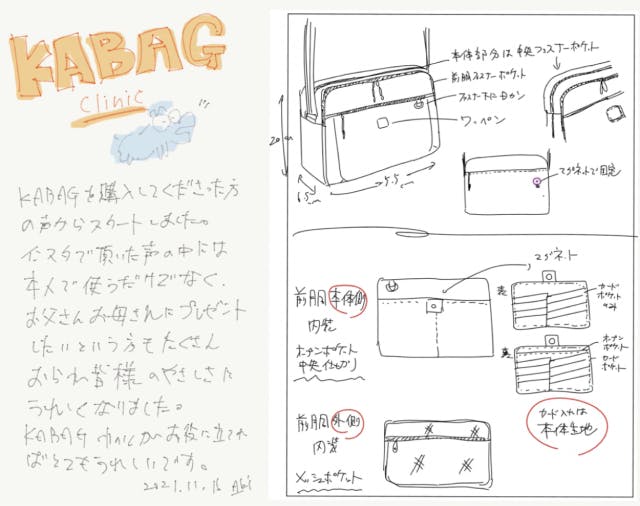 KABAG
Clinic
KABAGを購入してくださった方
の声からスタートしました。
インスタで頂いた声の中には
本人で使うだけでなく、
お父さんお母さんにプレゼント
したいという方もたくさん
おられ皆様のやさしさに
うれしくなりました。
KABAG clinicがお役に立てれ
ばとてもうれしいです。
2021.11.16
本体部分は中央ファスナーポケット
前胴ファスナーポケット
ファスナー下に
ワッペン
20
6.5
マグネットで固定
マグネット
前胴本体側
内装
オープンポケット
中央仕切り
表
カード
ポケット
オープン
ポケット
裏
カード
ポケット
カード入れは
本体生地
前胴外側
内装
メッシュポケット